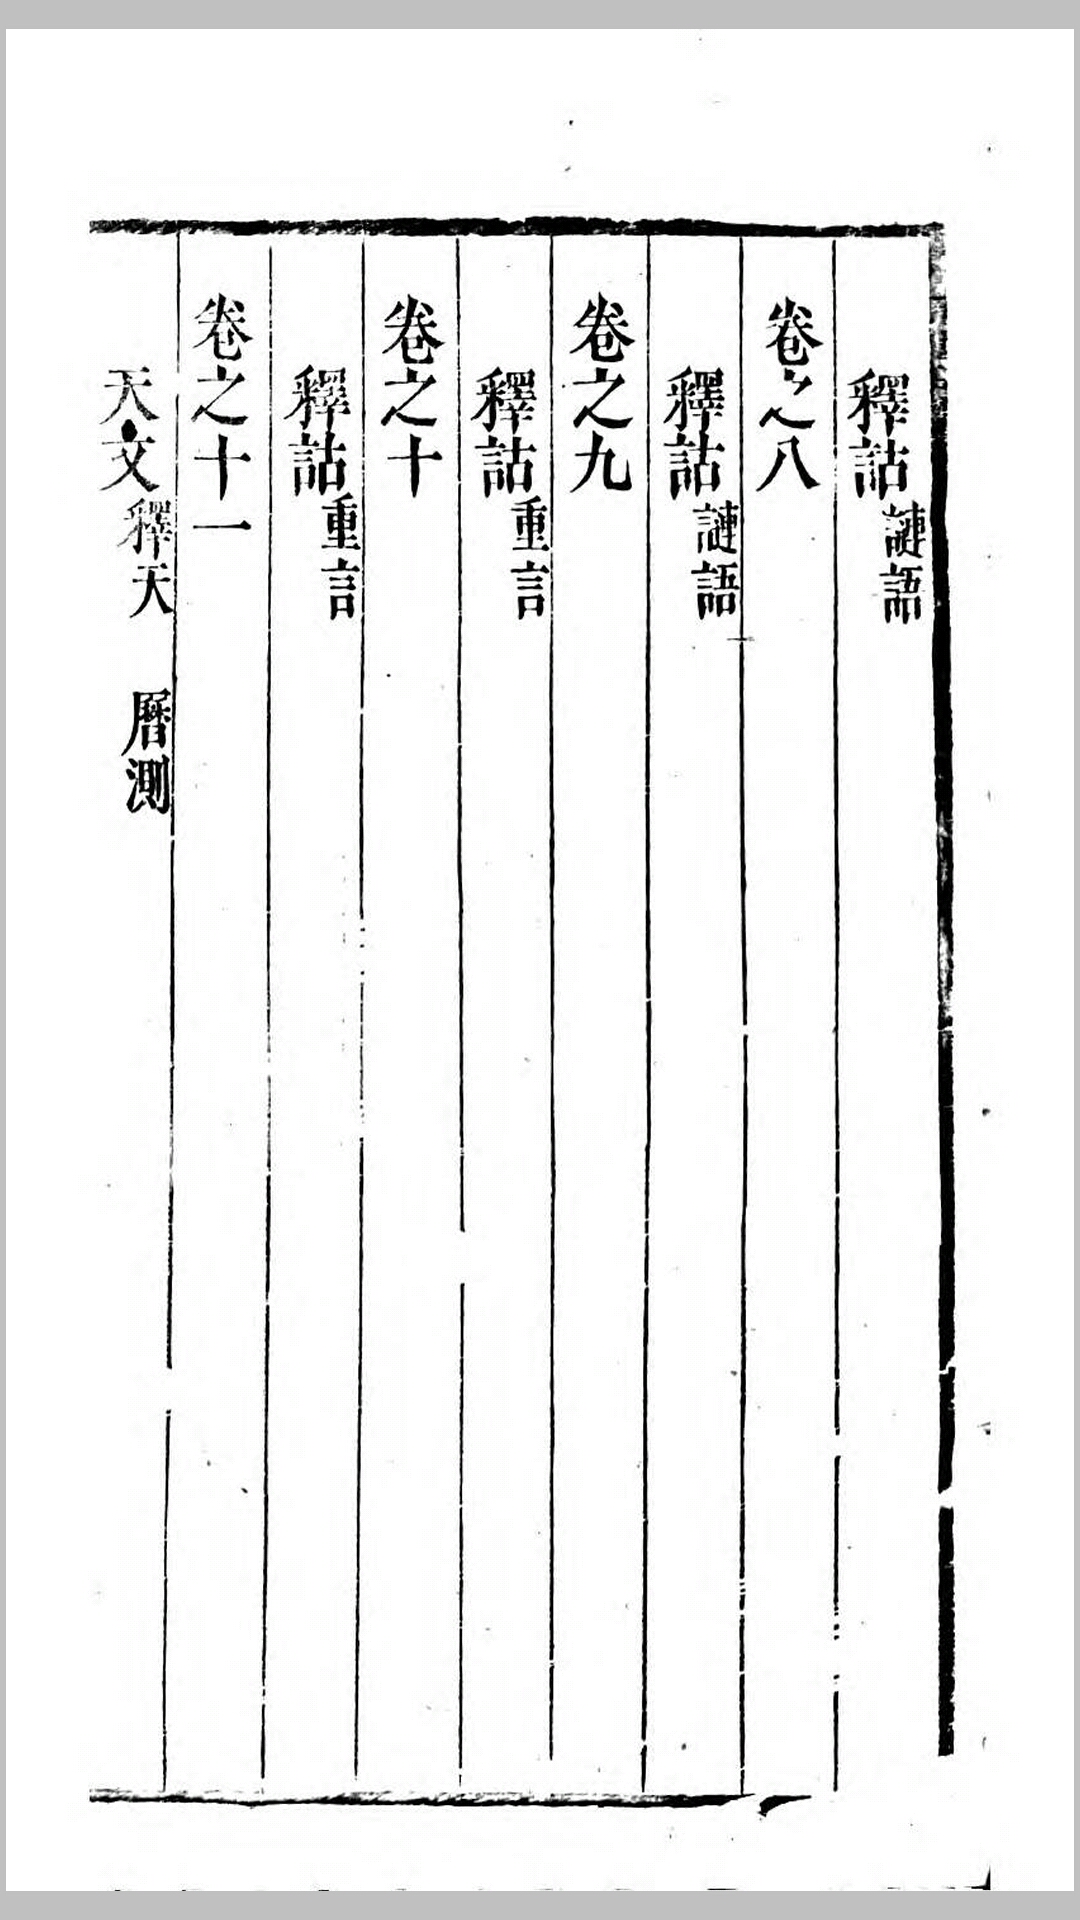 釋詁謰語
卷之八
釋詁謰語
卷之九
釋詁重言
卷之十
釋詁重言
卷之十一
天文釋天 曆測